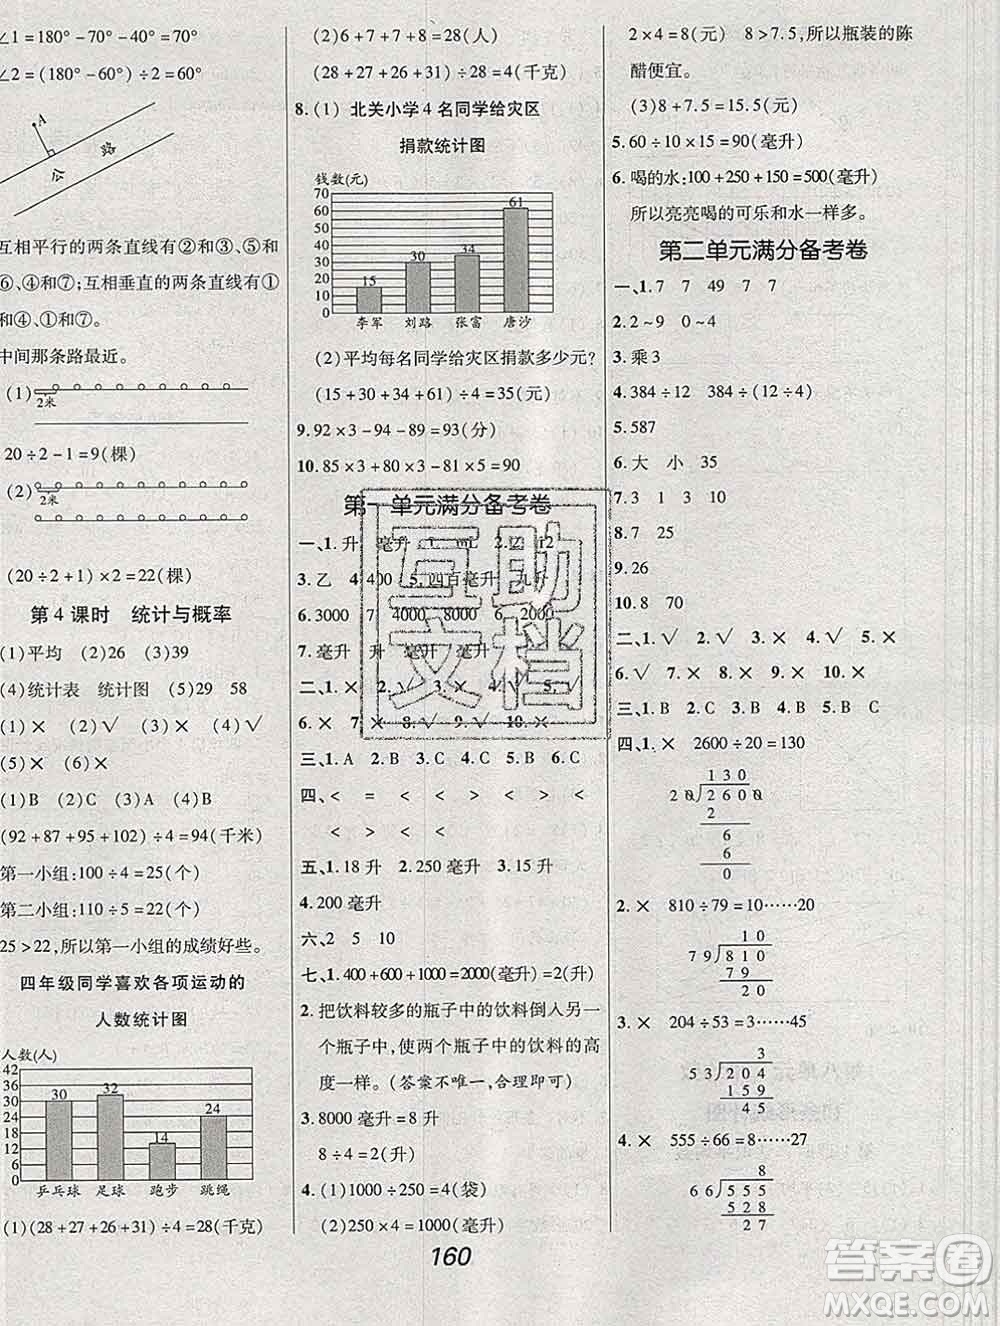 ∠1=180°-70°-40°=70°
∠2=(180°-60°)÷2=60°
A
公 路
互相平行的两条直线有②和③、⑤和
⑥、④和⑦;互相垂直的两条直线有①
和④、①和⑦。
中间那条路最近。
(1)
2米
20÷2-1=9(棵)
(2)
2米
(20÷2+1)×2=22(棵)
第 4 课时 统计与概率
(1)平均 (2)26 (3)39
(4)统计表 统计图 (5)29 58
(1)× (2)√ (3)× (4)√
(5)×
(1)B (2)C (3)A (4)B
(92+87+95+102)÷4=94(千米)
第一小组:100÷4=25(个)
第二小组:110÷5=22(个)
25>22,所以第一小组的成绩好些。
四年级同学喜欢各项运动的
人数统计图
人数(人)
42
36
30
24
18
12
6
0
30
32
14
24
乒乓球 足球 跑步 跳绳
(1)(28+27+26+31)÷4=28(千克)
(2)6+7+7+8=28(人)
(28+27+26+31)÷28=4(千克)
8.(1) 北关小学 4 名同学给灾区
捐款统计图
钱数(元)
70
60
50
40
30
20
10
0
15
30
34
61
李军 刘路 张富 唐沙
(2)平均每名同学给灾区捐款多少元?
(15+30+34+61)÷4=35(元)
9.92×3-94-89=93(分)
10.85×3+80-85-80+5=90
第一单元满分备考卷
一、1.升 毫升 L mL 2.
3.乙 4.400 5.四百毫升 九升
6.3000 7 4000 8000 6 2000
7.毫升 升 升 毫升 毫升 升
二、1.× 2.√ 3.× 4.× 5.√
6.× 7.× 8.√ 9.√ 10.×
三、1.A 2.B 3.C 4.C 5.B
四、< = < < < > <
< > < < <
五、1.18 升 2.250 毫升 3.15 升
4.200 毫升
六、2 5 10
七、1.400+600+1000=2000(毫升)=2(升)
2.把饮料较多的瓶子中的饮料倒入另一
个瓶子中,使两个瓶子中的饮料的高
度一样。(答案不唯一,合理即可)
3.8000 毫升=8 升
8÷4=2(升)
4.(1)1000÷250=4(袋)
(2)250×4=1000(毫升)
2×4=8(元) 8>7.5,所以瓶装的陈
醋便宜。
(3)8+7.5=15.5(元)
5.60÷10×15=90(毫升)
6.喝的水:100+250+150=500(毫升)
所以亮亮喝的可乐和水一样多。
第二单元满分备考卷
一、1.7 7 49 7 7
2.2~9 0~4
3.乘 3
4.384÷12 384÷(12÷4)
5.587
6.大 小 35
7.3 1 3 10
8.7 25
9.26
10.8 70
二、1.√ 2.√ 3.× 4.√ 5.×
6.√ 7.× 8.× 9.× 10.×
三、1.B 2.C 3.C 4.B 5.B C
四、1.× 2600÷20=130
130
20)2600
2
6
6
0
2.× 810÷79=10……20
10
79)810
79
20
3.× 204÷53=3……45
3
53)204
159
45
4.× 555÷66=8……27
8
66)555
528
27
160
互助
文档
答案圈
MXQE.COM